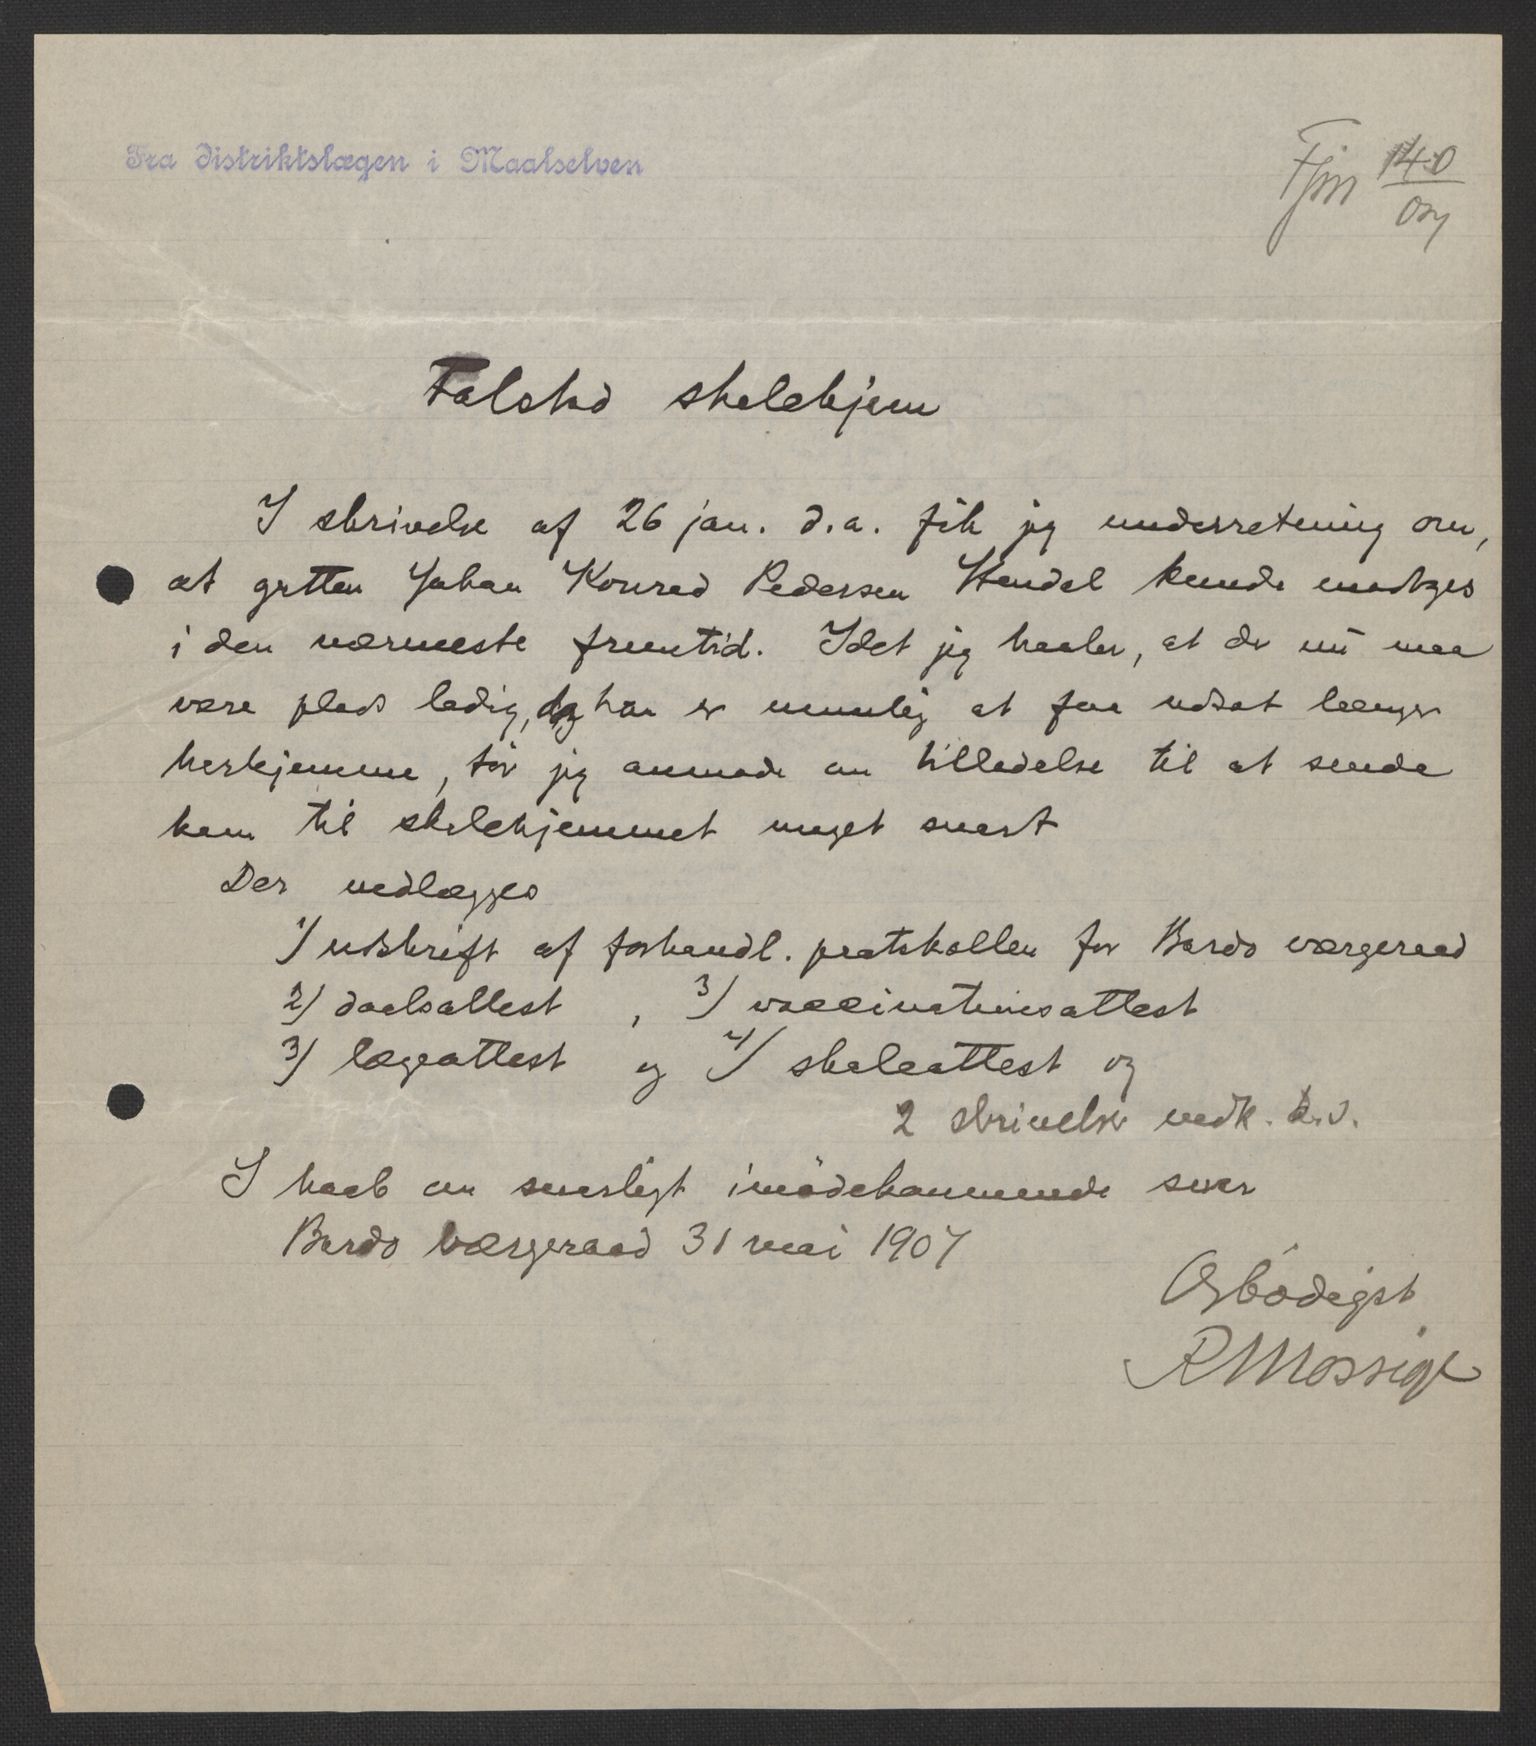 Fra Distriktslægen i Maalselven
140
07
Falstad skolehjem
I skrivelse af 26 jan. d.a. fik jeg underretning om,
at gutten Johan Konrad Pedersen kunde modtages
i den nærmeste fremtid. Idet jeg haaber, at der nu maa
være plads ledig, og han er umulig at faa udsat længer
herhjemme, tør jeg anmode om tilladelse til at sende
ham til skolehjemmet meget snart
Der vedlægges
1/ udskrift af forhandl. protokollen for Bardo værgeraad
2/ daabsattest , 3/ vaccinationsattest
3/ lægeattest og 4/ skoleattest og
2 skrivelser vedk.
I haab om snarligt imødekommende svar
Bardo værgeraad 31 mai 1907
Ærbødigst
R Mossige